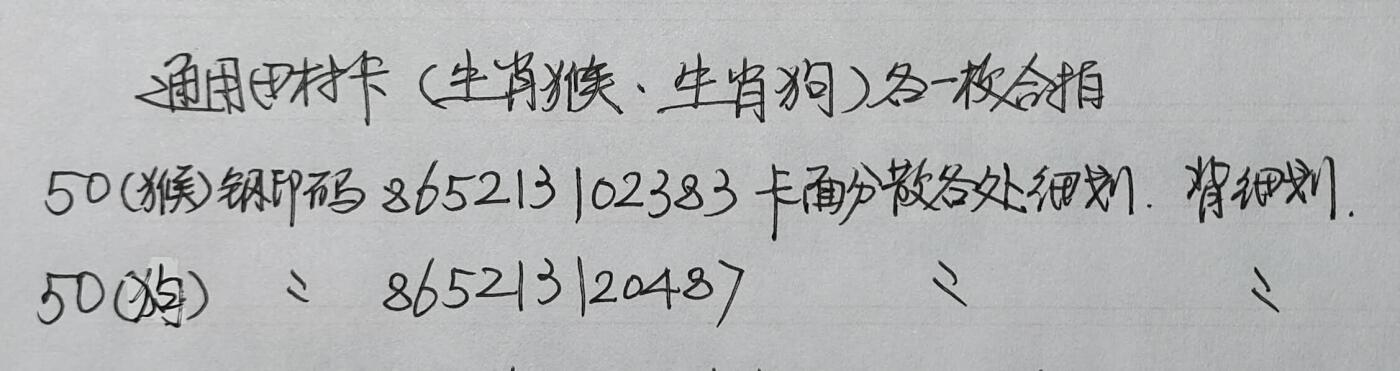 通用田村卡（生肖猴、生肖狗）各一枚合拍
50(猴)钢印码 865213102383 卡面分散各处细划. 背细划.
50(狗) 〃 865213120487 〃 〃